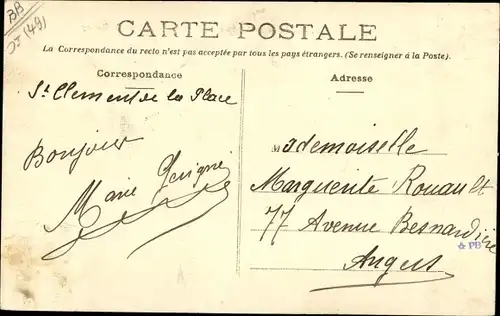 BB
DJ (49)
CARTE POSTALE
La Correspondance du recto n'est pas acceptée par tous les pays étrangers. (Se renseigner à la Poste).
Correspondance
Adresse
St Clement de la Place
Bonjour
Marie
Mademoiselle
Marguerite Rouault
77 Avenue Besnardière
☆ PB
Angers